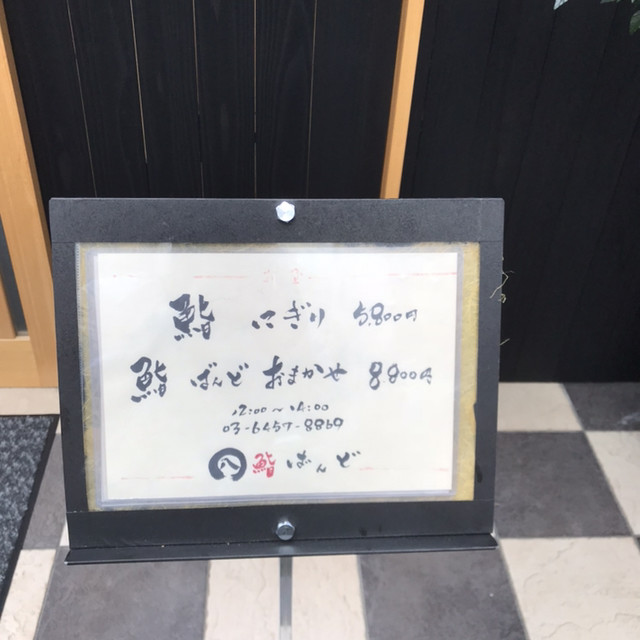 鮨 にぎり 5,800円
鮨 ばんど おまかせ 8,800円
12:00〜14:00
03-6457-8869
八 鮨 ばんど